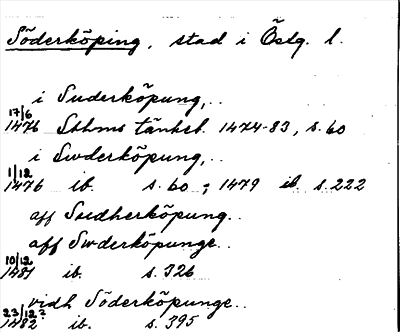 Söderköping, stad i Östg. l.
i Suderköpung,..
17/6
1476 Sthlms tänkeb. 1474-83, s. 60
i Swderköpung,..
1/12
1476 ib. s. 60 ; 1479 ib. s. 222
aff Sudherköpung..
aff Swderköpunge..
10/12
1481 ib. s. 326
vidh Söderköpunge..
23/12?
1482 ib. s. 395